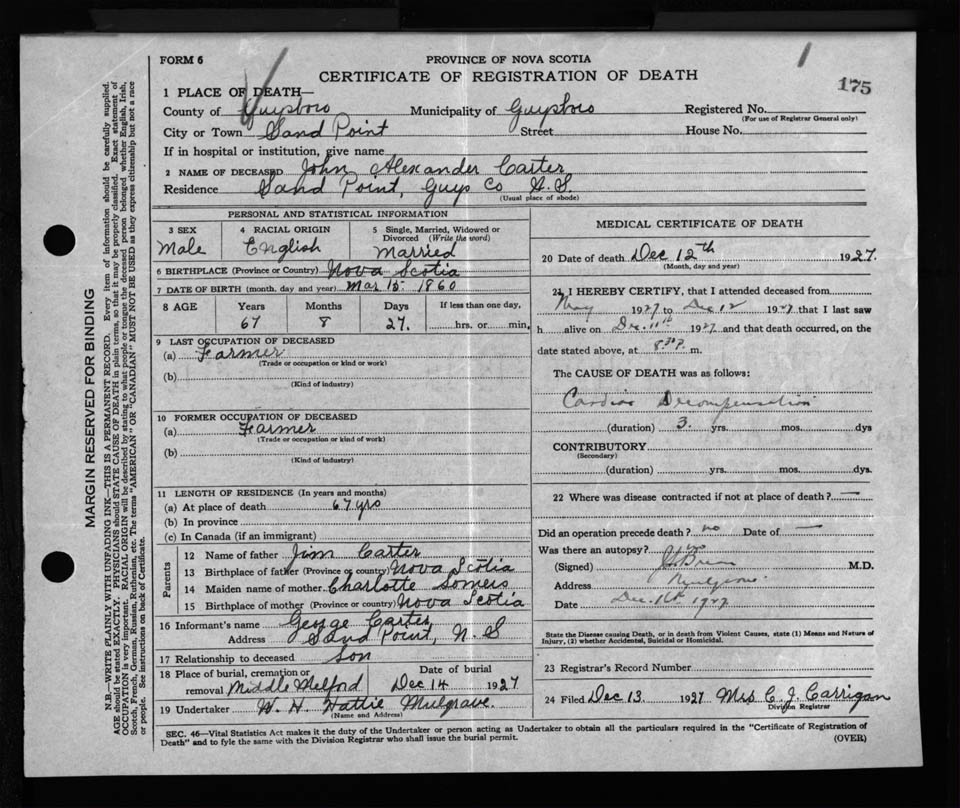 FORM 6
PROVINCE OF NOVA SCOTIA
CERTIFICATE OF REGISTRATION OF DEATH
175
1 PLACE OF DEATH—
County of Guysboro Municipality of Guysboro Registered No.
(For use of Registrar General only)
City or Town Sand Point Street House No.
If in hospital or institution, give name
2 NAME OF DECEASED John Alexander Carter
Residence Sand Point, Guys Co N.S.
(Usual place of abode)
PERSONAL AND STATISTICAL INFORMATION
3 SEX 4 RACIAL ORIGIN 5 Single, Married, Widowed or Divorced (Write the word)
Male English Married
6 BIRTHPLACE (Province or Country) Nova Scotia
7 DATE OF BIRTH (month, day and year) Mar 15 1860
8 AGE Years Months Days If less than one day,
67 8 27. hrs. or min.
9 LAST OCCUPATION OF DECEASED
(a) Farmer
(Trade or occupation or kind of work)
(b)
(Kind of industry)
10 FORMER OCCUPATION OF DECEASED
(a) Farmer
(Trade or occupation or kind of work)
(b)
(Kind of industry)
11 LENGTH OF RESIDENCE (In years and months)
(a) At place of death 67 yrs
(b) In province
(c) In Canada (if an immigrant)
Parents
12 Name of father Jim Carter
13 Birthplace of father (Province or country) Nova Scotia
14 Maiden name of mother Charlotte Somers
15 Birthplace of mother (Province or country) Nova Scotia
16 Informant's name George Carter
Address Sand Point, N. S
17 Relationship to deceased Son
18 Place of burial, cremation or removal Middle Melford
Date of burial
Dec 14 1927
19 Undertaker W. H. Hattie Mulgrave.
(Name and Address)
MEDICAL CERTIFICATE OF DEATH
20 Date of death Dec 12th 1927.
(Month, day and year)
21 I HEREBY CERTIFY, that I attended deceased from
May 1927 to Dec 12 1927 that I last saw
h alive on Dec. 11th 1927 and that death occurred, on the
date stated above, at 8.30 P. m.
The CAUSE OF DEATH was as follows:
Cardiac Decompensation
(duration) 3. yrs. mos. dys
CONTRIBUTORY
(Secondary)
(duration) yrs. mos. dys.
22 Where was disease contracted if not at place of death? —
Did an operation precede death? no Date of —
Was there an autopsy? no
(Signed) M.D.
Address Mulgrave.
Date Dec. 1927
State the Disease causing Death, or in death from Violent Causes, state (1) Means and Nature of
Injury, (2) whether Accidental, Suicidal or Homicidal.
23 Registrar's Record Number
24 Filed Dec 13. 1927 Mrs C. J. Carrigan
Division Registrar
SEC. 46—Vital Statistics Act makes it the duty of the Undertaker or person acting as Undertaker to obtain all the particulars required in the "Certificate of Registration of
Death" and to fyle the same with the Division Registrar who shall issue the burial permit.
(OVER)
MARGIN RESERVED FOR BINDING
N.B.—WRITE PLAINLY WITH UNFADING INK—THIS IS A PERMANENT RECORD. Every item of information should be carefully supplied.
AGE should be stated EXACTLY. PHYSICIANS should STATE CAUSE OF DEATH in plain terms, so that it may be properly classified. Exact statement of
OCCUPATION is very important. RACIAL ORIGIN will be described by stating to what people or tongue the deceased person belonged whether English, Irish,
Scotch, French, German, Russian, Ruthenian, etc. The terms "AMERICAN" OR "CANADIAN" MUST NOT BE USED as they express citizenship but not a race
or people. See instructions on back of Certificate.